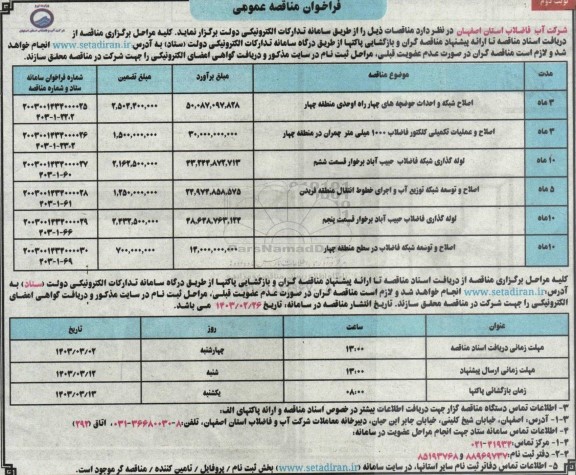 نوبت دوم
فراخوان مناقصه عمومی
شرکت آب فاضلاب استان اصفهان در نظر دارد مناقصات ذیل را از طریق سامانه تدارکات الکترونیکی دولت برگزار نماید. کلیه مراحل برگزاری مناقصه از
دریافت اسناد مناقصه تا ارائه پیشنهاد مناقصه گران و بازگشایی پاکتها از طریق درگاه سامانه تدارکات الکترونیکی دولت (ستاد) به آدرس www.setadiran.ir انجام خواهد
شد و لازم است مناقصه گران در صورت عدم عضویت قبلی، مراحل ثبت نام در سایت مذکور و دریافت گواهی امضای الکترونیکی را جهت شرکت در مناقصه محقق سازند.
مدت موضوع مناقصه مبلغ برآورد مبلغ تضمین شماره فراخوان سامانه
ستاد و شماره مناقصه
۳ ماه اصلاح شبکه و احداث حوضچه های چهارراه اوحدی منطقه چهار ۵۰,۰۸۷,۰۹۷,۸۲۸ ۲,۵۰۴,۴۰۰,۰۰۰ ۲۰۰۳۰۰۱۴۳۴۰۰۰۰۲۵
۴۰۳-۱-۲۲/۲
۳ ماه اصلاح و عملیات تکمیلی کلکتور فاضلاب ۱۰۰۰ میلی متر چمران در منطقه چهار ۳۰,۰۰۰,۰۰۰,۰۰۰ ۱,۵۰۰,۰۰۰,۰۰۰ ۲۰۰۳۰۰۱۴۳۴۰۰۰۰۲۶
۴۰۳-۱-۲۳/۲
۱۰ ماه لوله گذاری شبکه فاضلاب حبیب آباد برخوار قسمت ششم ۴۳,۲۴۴,۸۷۲,۷۱۳ ۲,۱۶۲,۵۰۰,۰۰۰ ۲۰۰۳۰۰۱۴۳۴۰۰۰۰۲۷
۴۰۳-۱-۶۰
۵ ماه اصلاح و توسعه شبکه توزیع آب و اجرای خطوط انتقال منطقه فریدن ۲۴,۹۷۴,۸۵۸,۵۷۵ ۱,۲۵۰,۰۰۰,۰۰۰ ۲۰۰۳۰۰۱۴۳۴۰۰۰۰۲۸
۴۰۳-۱-۶۱
۱۰ماه لوله گذاری فاضلاب حبیب آباد برخوار قسمت پنجم ۴۸,۶۴۸,۷۶۳,۱۴۴ ۲,۴۳۲,۵۰۰,۰۰۰ ۲۰۰۳۰۰۱۴۳۴۰۰۰۰۲۹
۴۰۳-۱-۶۶
۱۰ماه اصلاح و توسعه شبکه فاضلاب در سطح منطقه چهار ۱۴,۰۰۰,۰۰۰,۰۰۰ ۷۰۰,۰۰۰,۰۰۰ ۲۰۰۳۰۰۱۴۳۴۰۰۰۰۳۰
۴۰۳-۱-۶۹
کلیه مراحل برگزاری مناقصه از دریافت اسناد مناقصه تا ارائه پیشنهاد مناقصه گران و بازگشایی پاکتها از طریق درگاه سامانه تدارکات الکترونیکی دولت (ستاد) به
آدرس www.setadiran.ir انجام خواهد شد و لازم است مناقصه گران در صورت عدم عضویت قبلی، مراحل ثبت نام در سایت مذکور و دریافت گواهی امضای
الکترونیکی را جهت شرکت در مناقصه محقق سازند. تاریخ انتشار مناقصه در سامانه، تاریخ ۱۴۰۳/۰۲/۲۶ می باشد.
عنوان ساعت روز تاریخ
مهلت زمانی دریافت اسناد مناقصه ۱۳:۰۰ چهارشنبه ۱۴۰۳/۰۳/۰۲
مهلت زمانی ارسال پیشنهاد ۱۳:۰۰ شنبه ۱۴۰۳/۰۳/۱۲
زمان بازگشائی پاکتها ۰۸:۰۰ یکشنبه ۱۴۰۳/۰۳/۱۳
۳- اطلاعات تماس دستگاه مناقصه گزار جهت دریافت اطلاعات بیشتر در خصوص اسناد مناقصه و ارائه پاکتهای الف:
۳-۱- آدرس: اصفهان، خیابان شیخ کلینی، خیابان جابر ابن حیان، دبیرخانه معاملات شرکت آب و فاضلاب استان اصفهان، تلفن: ۸-۰۳۱-۳۶۶۸۰۰۳۰، اتاق (۲۹۲)
۴- اطلاعات تماس سامانه ستاد جهت انجام مراحل عضویت در سامانه:
۴-۱- مرکز تماس: ۴۱۹۳۴-۰۲۱
۴-۲- دفتر ثبت نام: ۸۸۹۶۹۷۳۷ و ۸۵۱۹۳۷۶۸
۵- اطلاعات تماس دفاتر ثبت نام سایر استانها، در سایت سامانه (www.setadiran.ir) بخش ثبت نام / پروفایل / تامین کننده / مناقصه گر موجود است.